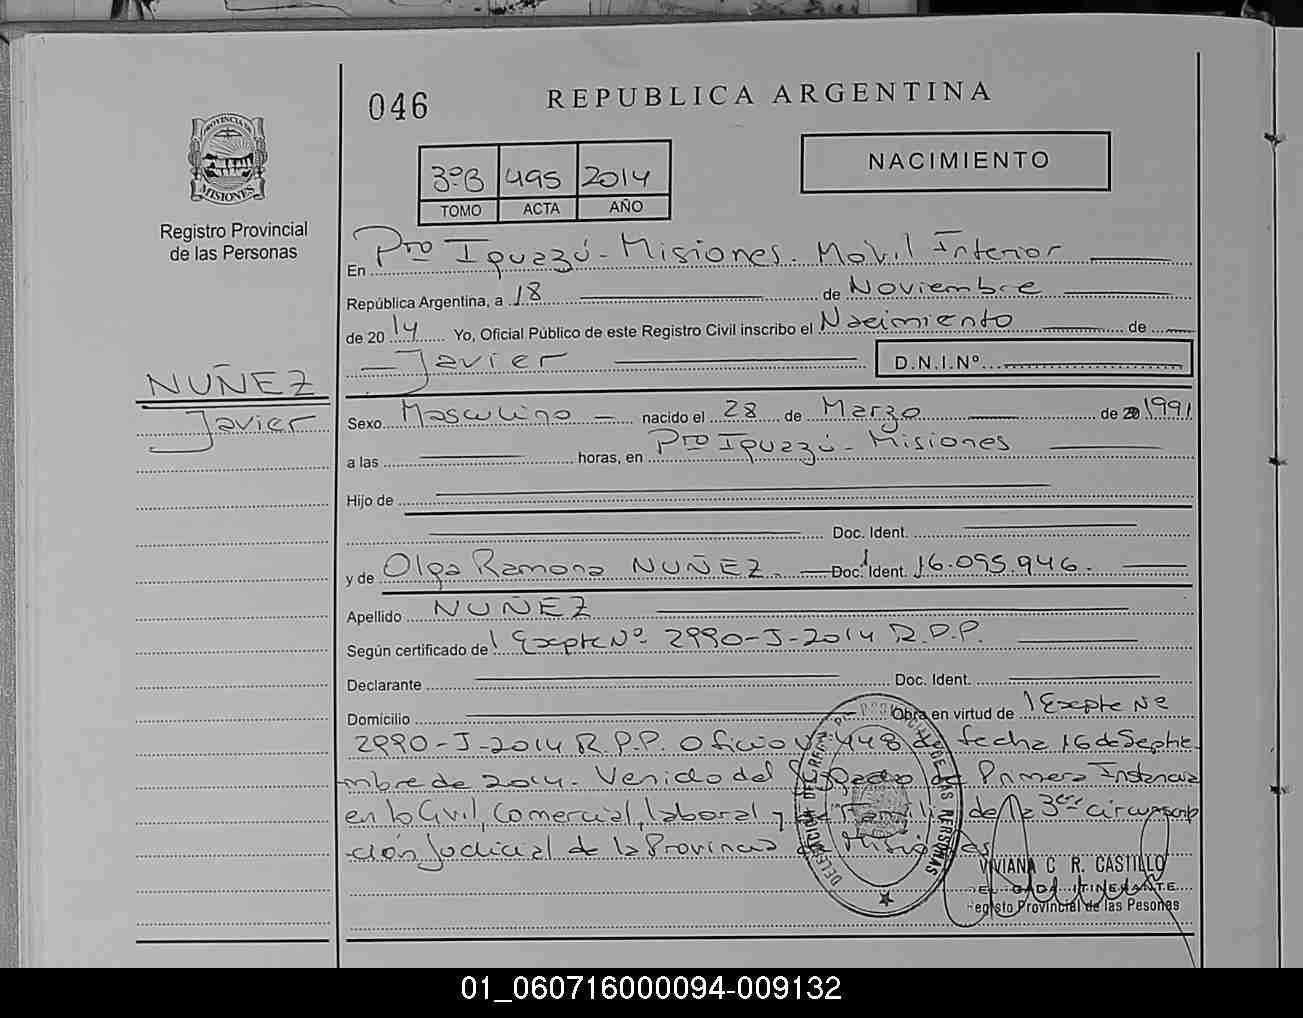 046
REPUBLICA ARGENTINA
PROVINCIA DE
MISIONES
Registro Provincial
de las Personas
3ºB 495 2014
TOMO ACTA AÑO
NACIMIENTO
En Pto Iguazú - Misiones. Movil Interior
República Argentina, a 18 de Noviembre
de 2014 Yo, Oficial Público de este Registro Civil inscribo el Nacimiento de
Javier D.N.I.Nº
NUÑEZ
Javier
Sexo Masculino nacido el 28 de Marzo de 1991
a las horas, en Pto Iguazú - Misiones
Hijo de
Doc. Ident.
y de Olga Ramona NUÑEZ Doc. Ident. 16.095.946.
Apellido NUÑEZ
Según certificado de Expte Nº 2990-J-2014 R.P.P.
Declarante Doc. Ident.
Domicilio Obra en virtud de Expte Nº
2990-J-2014 R.P.P. Oficio Nº 448 de fecha 16 de Septie-
mbre de 2014. Venido del Juzgado de Primera Instancia
en lo Civil, Comercial, laboral y de Familia de la 3era Circunscrip
ción Judicial de la Provincia de Misiones
DELEGACION DEL REG. PROVINCIAL DE LAS PERSONAS
VIVIANA C. R. CASTILLO
DELEGADA ITINERANTE
Registo Provincial de las Pesonas
01_060716000094-009132